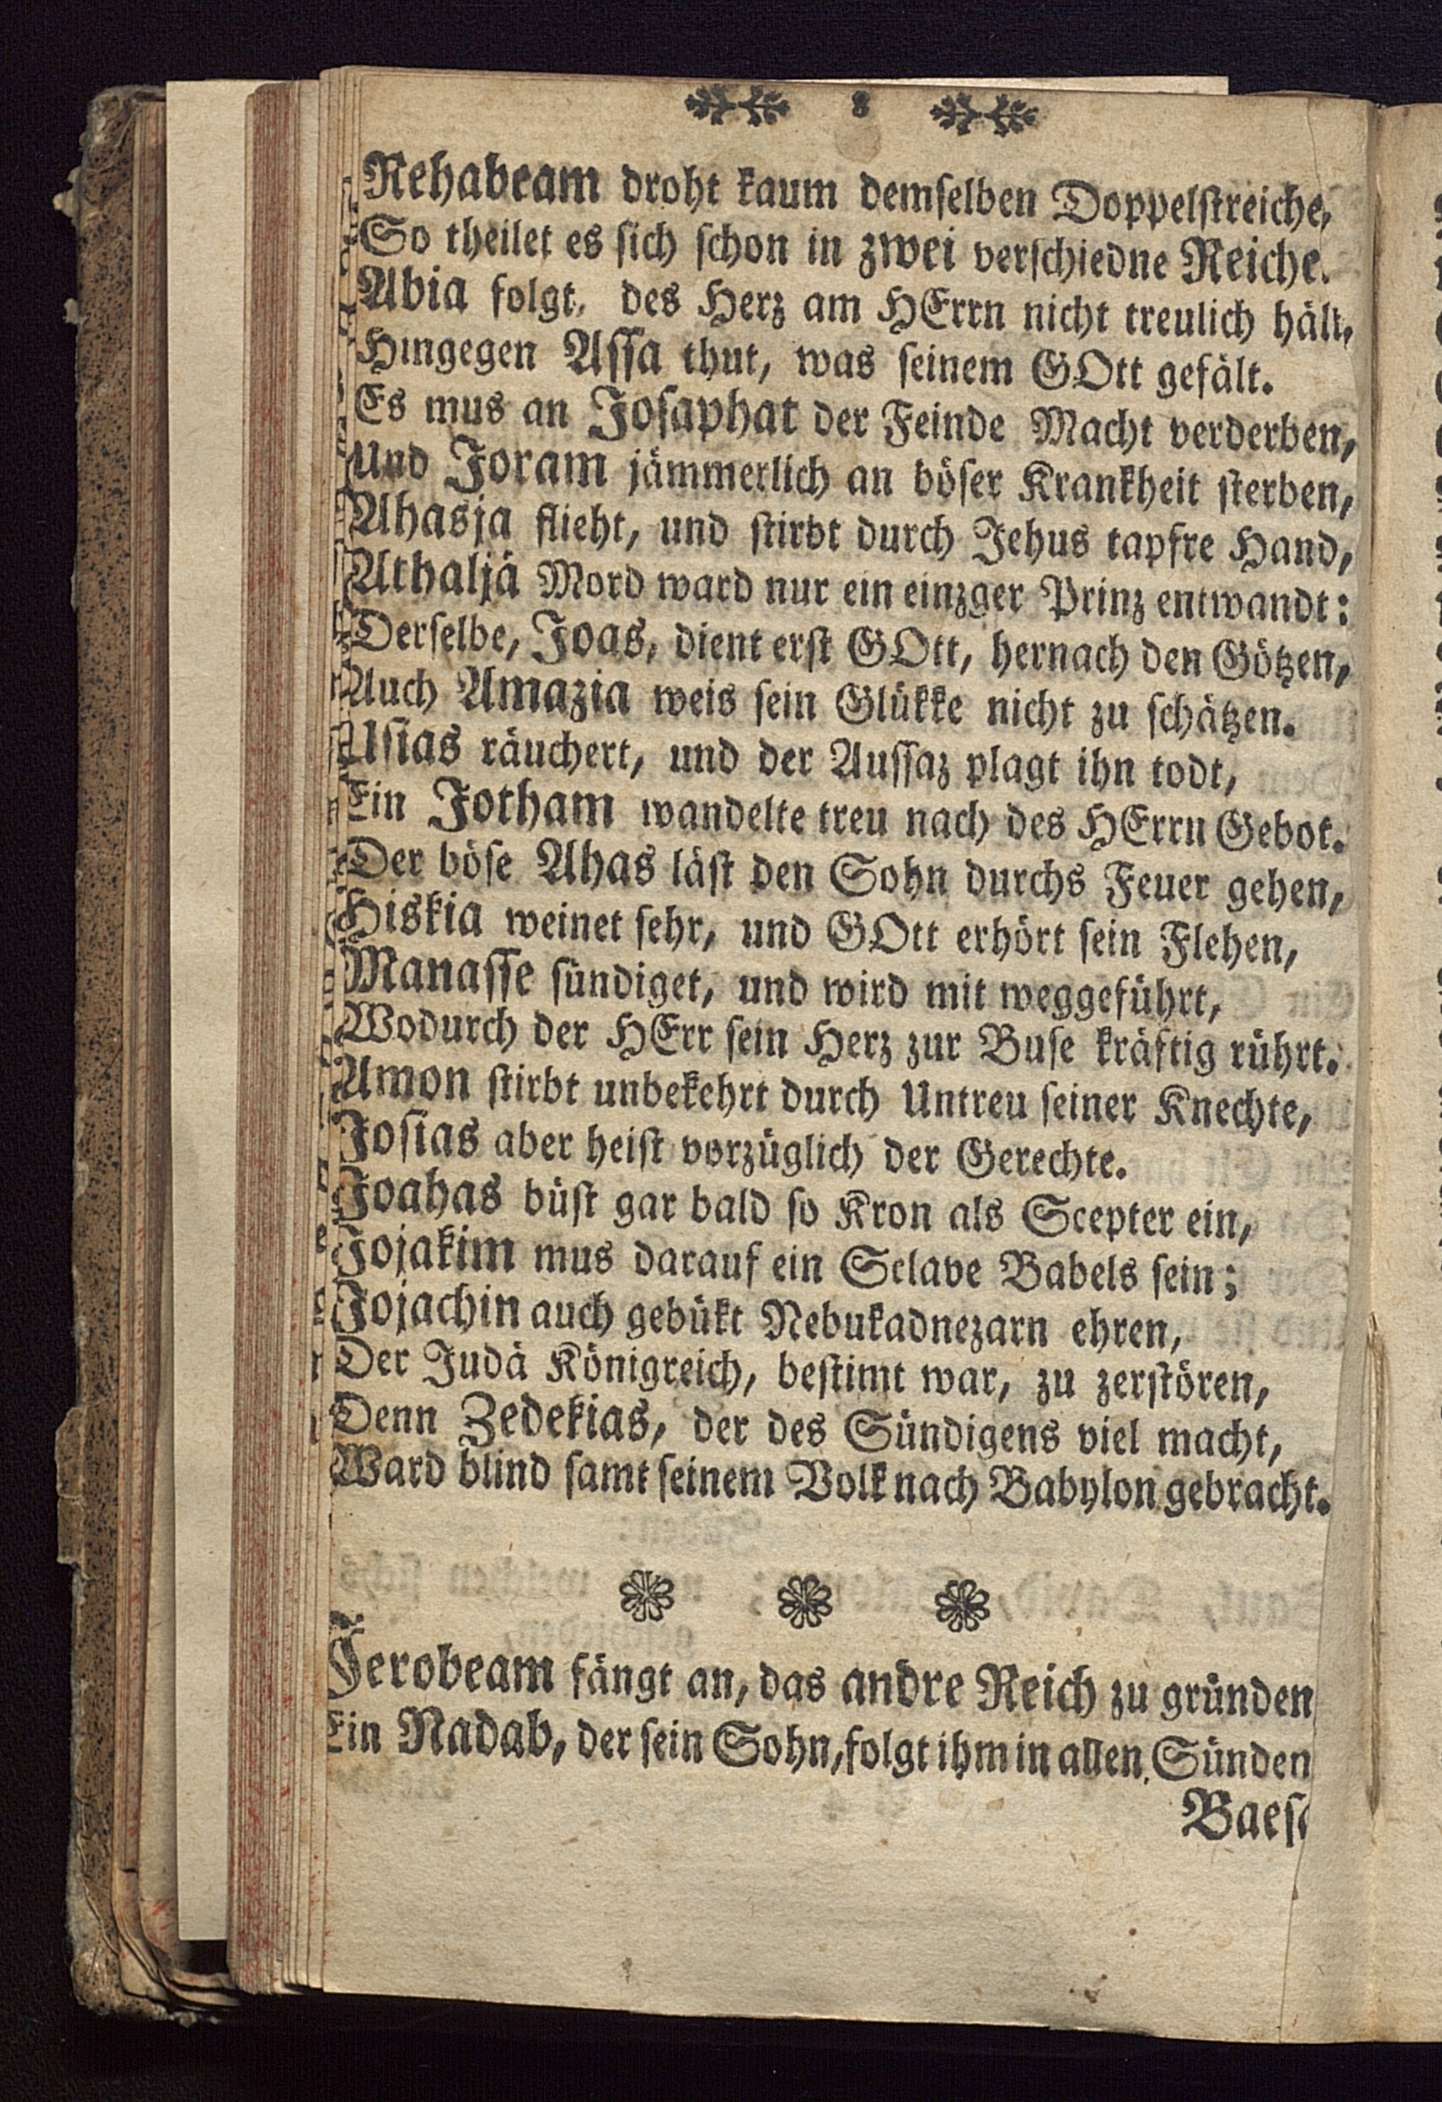 8
Rehabeam droht kaum demselben Doppelstreiche,
So theilet es sich schon in zwei verschiedne Reiche.
Abia folgt, des Herz am HErrn nicht treulich hält,
Hingegen Assa thut, was seinem GOtt gefält.
Es mus an Josaphat der Feinde Macht verderben,
Und Joram jämmerlich an böser Krankheit sterben,
Ahasja flieht, und stirbt durch Jehus tapfre Hand,
Athaljä Mord ward nur ein einzger Prinz entwandt:
Derselbe, Joas, dient erst GOtt, hernach den Götzen,
Auch Amazia weis sein Glükke nicht zu schätzen.
Usias räuchert, und der Aussaz plagt ihn todt,
Ein Jotham wandelte treu nach des HErrn Gebot.
Der böse Ahas läst den Sohn durchs Feuer gehen,
Hiskia weinet sehr, und GOtt erhört sein Flehen,
Manasse sündiget, und wird mit weggeführt,
Wodurch der HErr sein Herz zur Buse kräftig rührt.
Amon stirbt unbekehrt durch Untreu seiner Knechte,
Josias aber heist vorzüglich der Gerechte.
Joahas büst gar bald so Kron als Scepter ein,
Jojakim mus darauf ein Sclave Babels sein;
Jojachin auch gebükt Nebukadnezarn ehren,
Der Judä Königreich, bestimt war, zu zerstören,
Denn Zedekias, der des Sündigens viel macht,
Ward blind samt seinem Volk nach Babylon gebracht.
Jerobeam fängt an, das andre Reich zu gründen
Ein Nadab, der sein Sohn, folgt ihm in allen Sünden
Baes